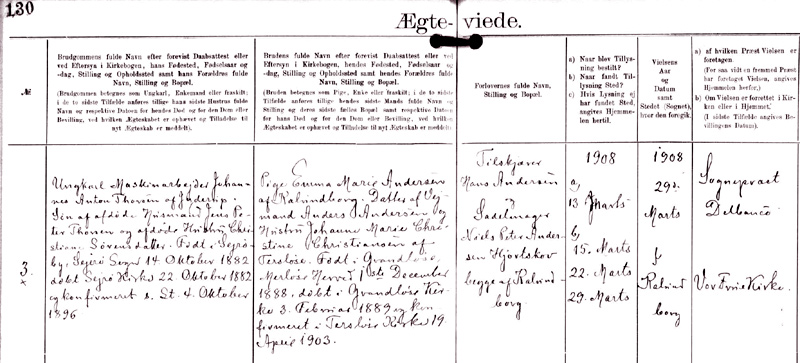 130
Ægte-viede.
№
Brudgommens fulde Navn efter forevist Daabsattest eller
ved Eftersyn i Kirkebogen, hans Fødested, Fødselsaar og
-dag, Stilling og Opholdssted samt hans Forældres fulde
Navn, Stilling og Bopæl.
(Brudgommen betegnes som Ungkarl, Enkemand eller fraskilt;
i de to sidste Tilfælde anføres tillige hans sidste Hustrus fulde
Navn og respektive Datoen for hendes Død og for den Dom eller
Bevilling, ved hvilken Ægteskabet er ophævet og Tilladelse til
nyt Ægteskab er meddelt).
Brudens fulde Navn efter forevist Daabsattest eller ved
Eftersyn i Kirkebogen, hendes Fødested, Fødselsaar og
-dag, Stilling og Opholdssted samt hendes Forældres fulde
Navn, Stilling og Bopæl.
(Bruden betegnes som Pige, Enke eller fraskilt; i de to sidste
Tilfælde anføres tillige hendes sidste Mands fulde Navn og
Stilling og deres sidste fælles Bopæl samt respektive Datoen
for hans Død og for den Dom eller Bevilling, ved hvilken
Ægteskabet er ophævet og Tilladelse til nyt Ægteskab er meddelt).
Forlovernes fulde Navn,
Stilling og Bopæl.
a) Naar blev Tillys-
ning bestilt?
b) Naar fandt Til-
lysning Sted?
c) Hvis Lysning ej
har fundet Sted,
angives Hjemme-
len hertil.
Vielsens
Aar
og
Datum
samt
Stedet (Sognet),
hvor den foregik.
a) af hvilken Præst Vielsen er
foretagen.
(For saa vidt en fremmed Præst
har foretaget Vielsen, angives
Hjemmelen herfor.)
b) Om Vielsen er forrettet i Kir-
ken eller i Hjemmet.
(I sidste Tilfælde angives Be-
villingens Datum).
3.
Ungkarl Maskinarbejder Johan-
nes Anton Thorsen af Jyderup.
Søn af afdøde Husmand Jens Pe-
ter Thorsen og afdøde Hustru Chri-
stiane Sørensdatter. Født i Sejrø
by, Sejrø Sogn 14 Oktober 1882
døbt Sejrø Kirke 22. Oktober 1882
og konfirmeret s. St. 4. Oktober
1896
Pige Emma Marie Andersen
af Kalundborg. Datter af
mand Anders Andersen og
Hustru Johanne Marie Chri-
stine Christiansen af
Tersløse. Født i Grandløse,
Merløse Herred 1ste December
1888, døbt i Grandløse Kir-
ke 3. Februar 1889 og kon
firmeret i Tersløse Kirke 19
April 1903.
Tilskjærer
Hans Andersen
og
Sadelmager
Niels Peter Ander-
sen Hjortskov
begge af Kalund-
borg
1908
a)
13 Marts
b)
15. Marts
22. Marts
29. Marts
1908
29.
Marts
i
Kalund
borg
Sognepræst
Delbanco
Vor Frue Kirke.